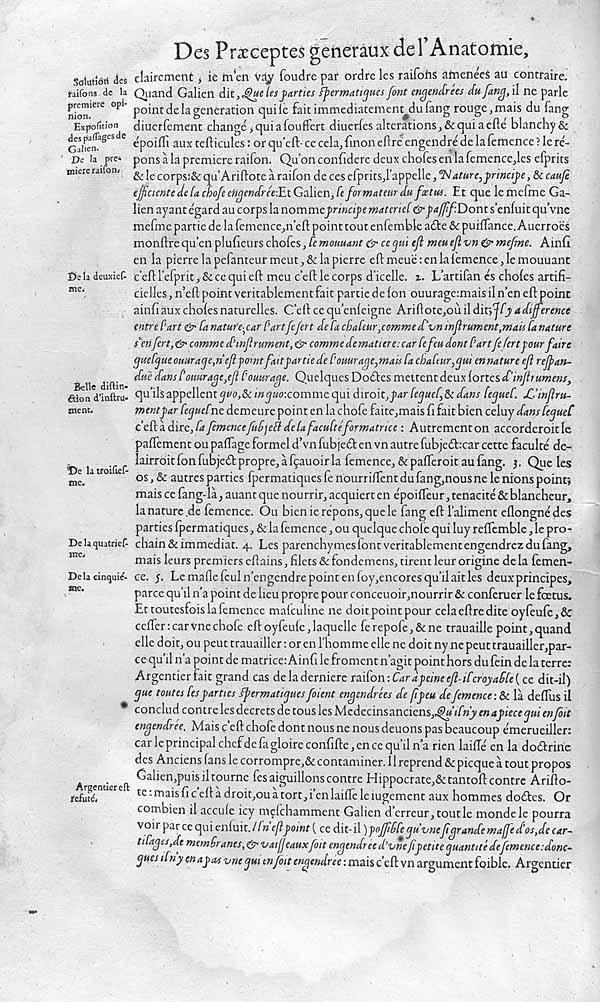 Des Præceptes generaux de l'Anatomie,
Solution des
raisons de la
premiere opi-
nion.
Exposition
des passages de
Galien.
De la pre-
miere raison.
clairement, ie m'en vay soudre par ordre les raisons amenées au contraire.
Quand Galien dit, Que les parties spermatiques sont engendrées du sang, il ne parle
point de la generation qui se fait immediatement du sang rouge, mais du sang
diuersement changé, qui a souffert diuerses alterations, & qui a esté blanchy &
époissi aux testicules: or qu'est-ce cela, sinon estre engendré de la semence? Ie ré-
pons à la premiere raison. Qu'on considere deux choses en la semence, les esprits
& le corps: & qu'Aristote à raison de ces esprits, l'appelle, Nature, principe, & cause
efficiente de la chose engendrée: Et Galien, le formateur du fœtus. Et que le mesme Ga-
lien ayant égard au corps la nomme principe materiel & passif: Dont s'ensuit qu'vne
mesme partie de la semence, n'est point tout ensemble acte & puissance. Auerroës
monstre qu'en plusieurs choses, le mouuant & ce qui est meu est vn & mesme. Ainsi
en la pierre la pesanteur meut, & la pierre est meuë: en la semence, le mouuant
De la deuxies-
me.
c'est l'esprit, & ce qui est meu c'est le corps d'icelle. 2. L'artisan és choses artifi-
cielles, n'est point veritablement fait partie de son ouurage: mais il n'en est point
ainsi aux choses naturelles. C'est ce qu'enseigne Aristote, où il dit; Il y a difference
entre l'art & la nature, car l'art se sert de la chaleur, comme d'vn instrument, mais la nature
s'en sert, & comme d'instrument, & comme de matiere: car le feu dont l'art se sert pour faire
quelque ouurage, n'est point fait partie de l'ouurage, mais la chaleur, qui en nature est respan-
duë dans l'ouurage, est l'ouurage. Quelques Doctes mettent deux sortes d'instrumens,
Belle distin-
ction d'instru-
ment.
qu'ils appellent quo, & in quo: comme qui diroit, par lequel, & dans lequel. L'instru-
ment par lequel ne demeure point en la chose faite, mais si fait bien celuy dans lequel
c'est à dire, la semence subject de la faculté formatrice: Autrement on accorderoit le
passement ou passage formel d'vn subject en vn autre subject: car cette faculté de-
lairroit son subject propre, à sçauoir la semence, & passeroit au sang. 3. Que les
De la troisies-
me.
os, & autres parties spermatiques se nourrissent du sang, nous ne le nions point;
mais ce sang-là, auant que nourrir, acquiert en époisseur, tenacité & blancheur,
la nature de semence. Ou bien ie répons, que le sang est l'aliment eslongné des
parties spermatiques, & la semence, ou quelque chose qui luy ressemble, le pro-
De la quatries-
me.
chain & immediat. 4. Les parenchymes sont veritablement engendrez du sang,
mais leurs premiers estains, filets & fondemens, tirent leur origine de la semen-
De la cinquié-
me.
ce. 5. Le masle seul n'engendre point en soy, encores qu'il ait les deux principes,
parce qu'il n'a point de lieu propre pour conceuoir, nourrir & conseruer le fœtus.
Et toutesfois la semence masculine ne doit point pour cela estre dite oyseuse, &
cesser: car vne chose est oyseuse, laquelle se repose, & ne trauaille point, quand
elle doit, ou peut trauailler: or en l'homme elle ne doit ny ne peut trauailler, par-
ce qu'il n'a point de matrice: Ainsi le froment n'agit point hors du sein de la terre:
Argentier fait grand cas de la derniere raison: Car à peine est-il croyable (ce dit-il)
que toutes les parties spermatiques soient engendrées de si peu de semence: & là dessus il
conclud contre les decrets de tous les Medecins anciens, Qu'il n'y en a piece qui en soit
engendrée. Mais c'est chose dont nous ne nous deuons pas beaucoup émerueiller:
car le principal chef de sa gloire consiste, en ce qu'il n'a rien laissé en la doctrine
des Anciens sans le corrompre, & contaminer. Il reprend & picque à tout propos
Galien, puis il tourne ses aiguillons contre Hippocrate, & tantost contre Aristo-
Argentier est
refuté.
te: mais si c'est à droit, ou à tort, i'en laisse le iugement aux hommes doctes. Or
combien il accuse icy meschamment Galien d'erreur, tout le monde le pourra
voir par ce qui ensuit. Il n'est point (ce dit-il) possible qu'vne si grande masse d'os, de car-
tilages, de membranes, & vaisseaux soit engendrée d'vne si petite quantité de semence: donc-
ques il n'y en a pas vne qui en soit engendrée: mais c'est vn argument foible. Argentier